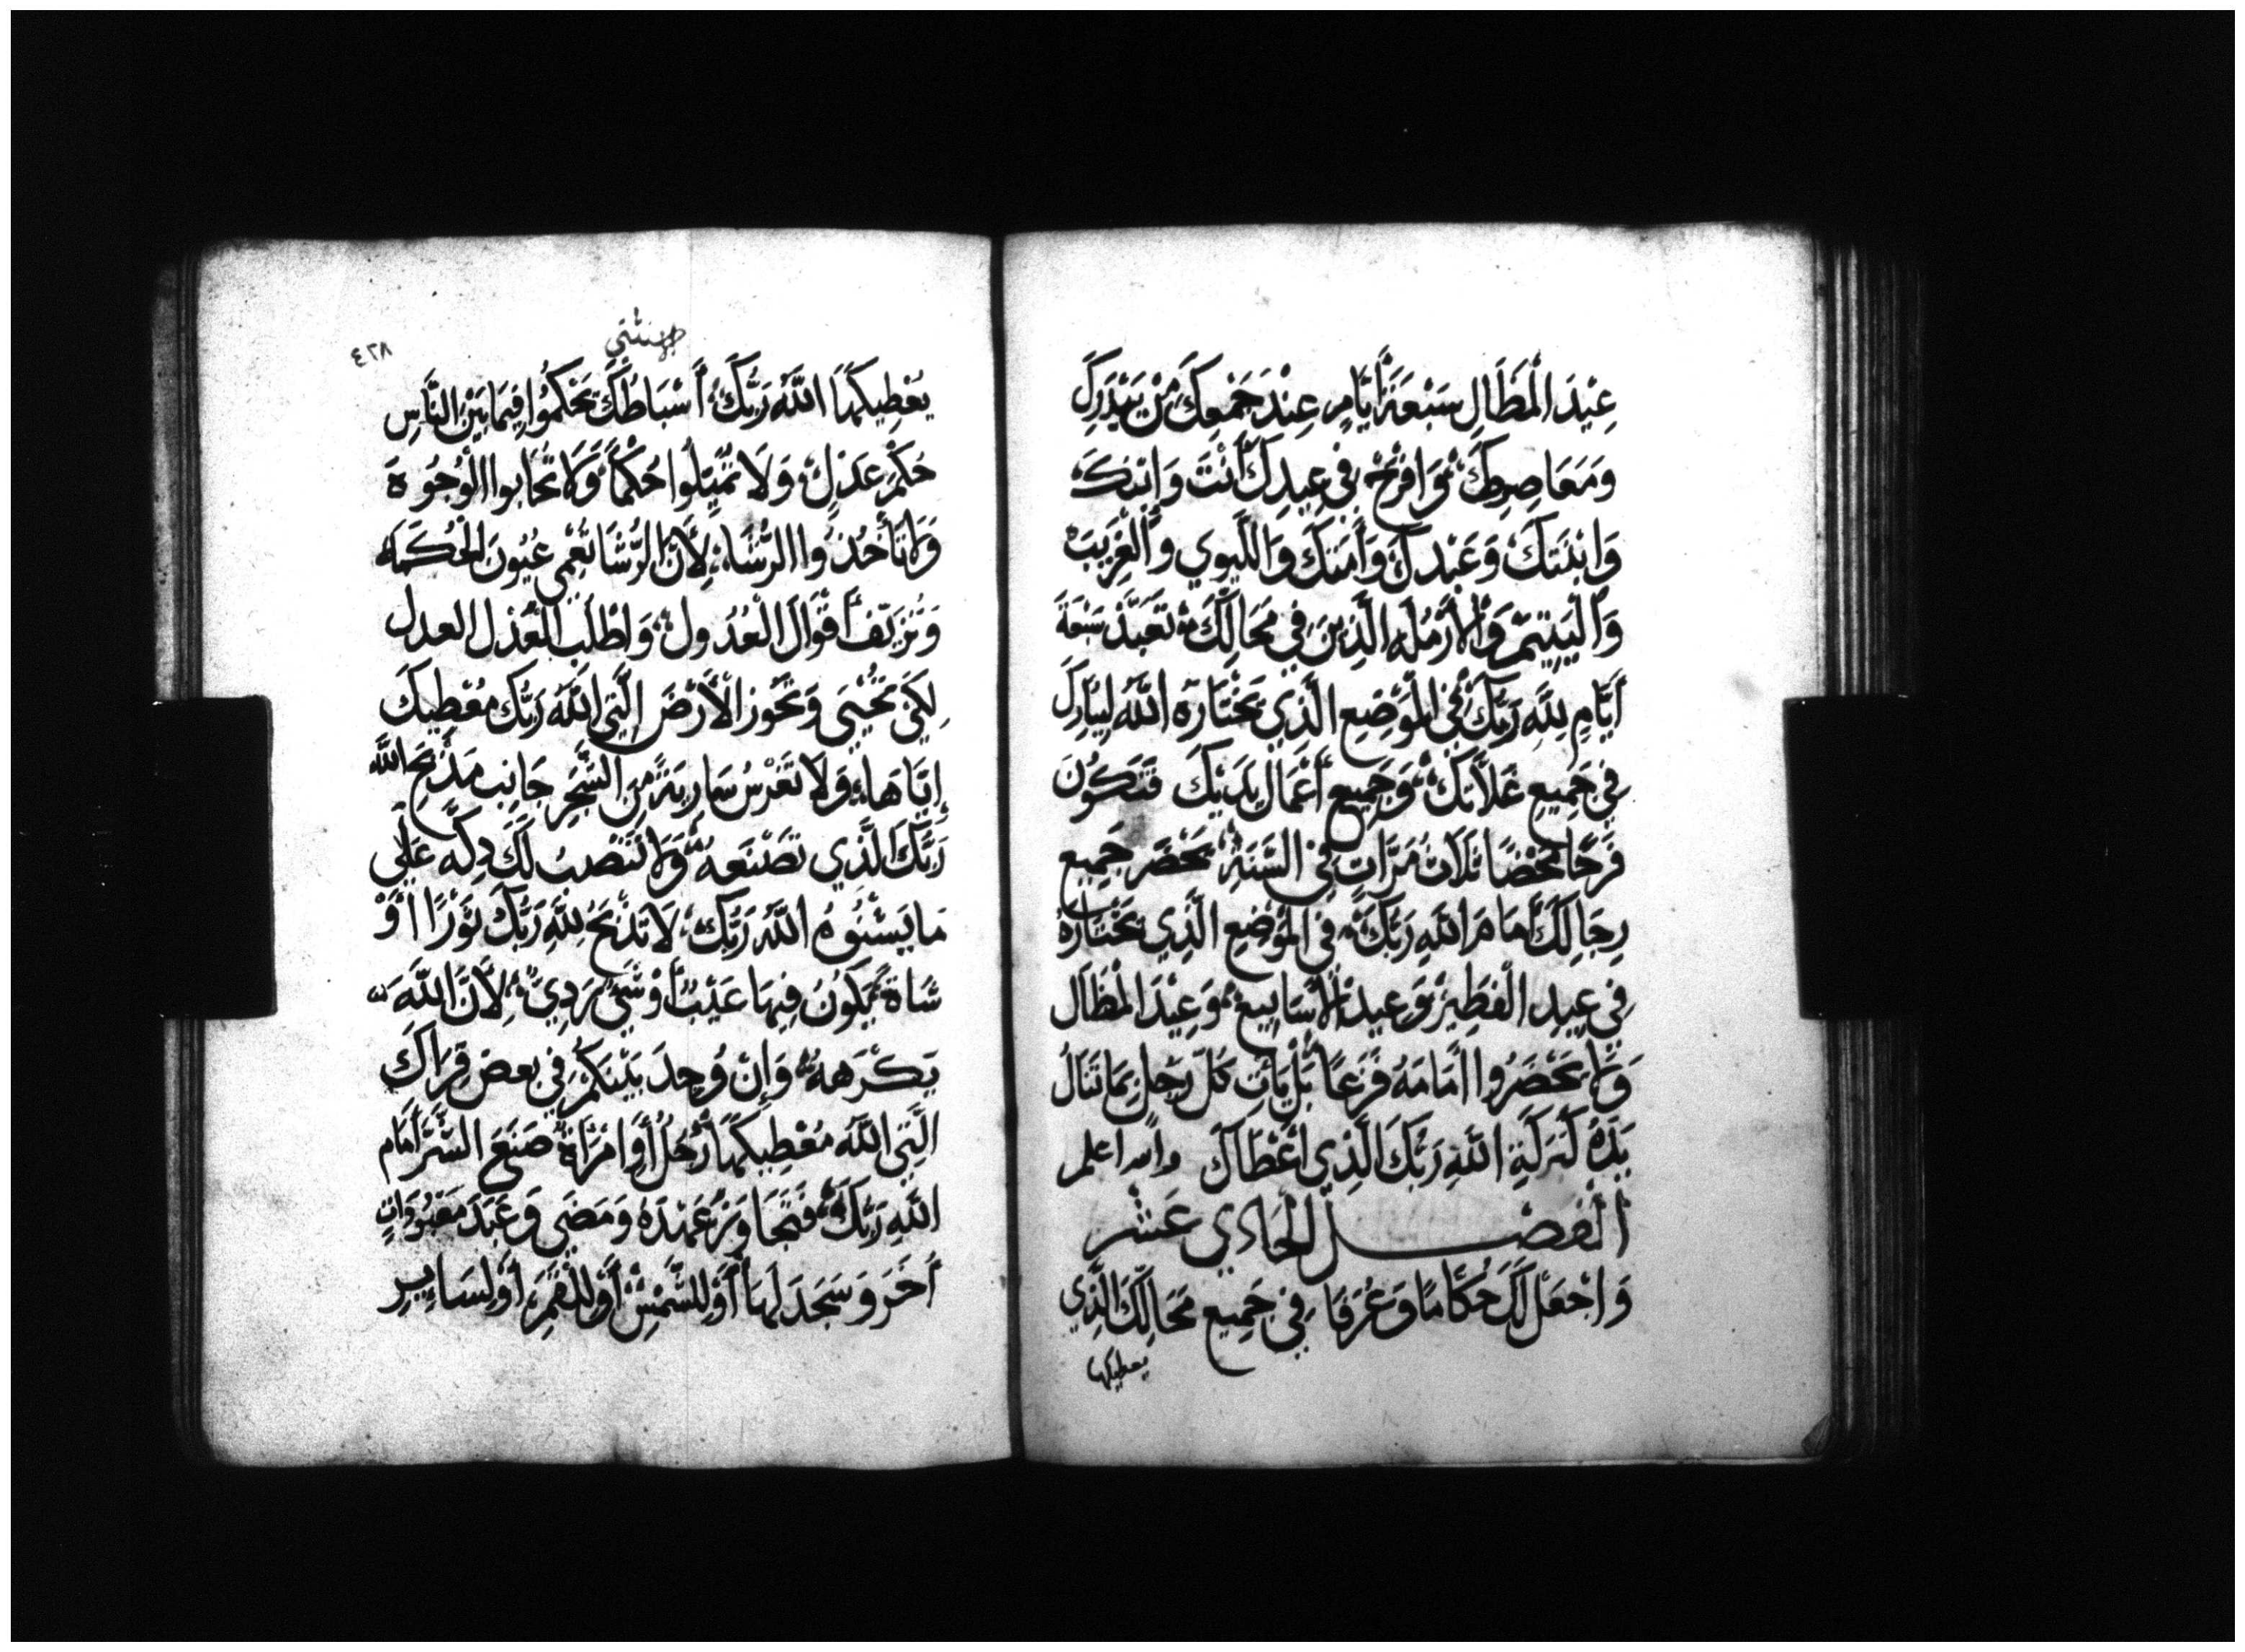 عِيْدَ الْمَظَالِ سَبْعَةَ أَيَّامٍ عِنْدَ جَمْعِكَ مِنْ بَيْدَرِكَ
وَمَعَاصِرِكَ وَافْرَحْ فِي عِيدِكَ أَنْتَ وَابْنَكَ
وَابْنَتَكَ وَعَبْدكَ وَأَمَتَكَ وَاللَّيوي وَالْغَرِيبَ
وَالْيَتِيمَ وَالأَرْمَلَه الَّذِينَ فِي مَحَالِّكَ تَعَبَّدْ سَبْعَةَ
أَيَّامٍ لِلَّهِ رَبِّكَ فِي الْمَوْضِعِ الَّذِي يَخْتَارَهُ اللَّهُ لِيُبَارِكَ
فِي جَمِيعِ غَلاَّتِكَ وَجَمِيعِ أَعْمَالِ يَدَيْكَ فَتَكُونَ
فَرِحًا مَحْضًا ثَلَاثَ مَرَّاتٍ فِي السَّنَةِ يَحْضَر جَمِيع
رِجَالِكَ أَمَامَ اللَّهِ رَبِّكَ فِي الْمَوْضِعِ الَّذِي يَخْتَارُهُ
فِي عِيدِ الْفَطِيرِ وَعِيدِ الأَسَابِيعِ وَعِيْدَ الْمَظَالَ
وَلَا يَحْضَرُوا أَمَامَهُ فَزَعًا بَلْ يَأتِ كُلّ رَجُلٍ بِمَا تَنَالُ
يَدَهُ كَبَرَكَةِ اللَّهِ رَبِّكَ الَّذِي أَعْطَاكَ والله اعلم
الْفصْـــل الْحَادِي عَشَر
وَاجْعَلْ لَكَ حُكَّامًا وَعُرَفَا فِي جَمِيعِ مَحَالِّكَ الَّذِي
يعطيكها
٤٢٨
يُعْطِيكَهَا اللَّهُ رَبُّكَ أَسْبَاطُكَ يَحْكُمُوا فِيمَا بَيْنَ النَّاسِ
حَكْمَ عَدْلٍ وَلَا تُمَيِّلُوا حُكْمًا وَلَا تُحَابوا الْوُجُوهَ
وَلَا تَأْخُذُوا الرُّشَاءَ لِأَنَّ الرُّشَا تُعْمِي عُيُونَ الْحُكَمَاء
وَتُزَيِّفُ أَقْوَالَ الْعُدُولِ وَاطْلُب الْعَدْل العدل
لِكَيْ تَحْيَى وَتَحُوزَ الْأَرْضَ الَّتِي اللَّهُ رَبُّكَ مُعْطِيكَ
إِيَّاهَا وَلَا تَغْرسْ سَارِيَةً مِنَ الشَّجَرِ جَانِب مَذْبَحِ اللَّهِ
رَبِّكَ الَّذِي تَصْنَعهُ وَلَا تَنْصُبْ لَكَ دِكَّه عَلَى
مَا يَشْنُوهُ اللَّهُ رَبُّكَ لَا تَذْبَحْ لِلَّهِ رَبِّكَ ثَوْرًا أَوْ
شَاةً يَكُونُ فِيهَا عَيْبٌ أَوْ شَيْءٌ رَدِيٌّ لِأَنَّ اللَّهَ
يَكْرَههُ وَإِنْ وُجِدَ بَيْنَكُمْ فِي بعض قِرَاكَ
الَّتِي اللَّهُ مُعْطِيكَهَا رَجُلٌ أَوِ امْرَأَةٌ صَنَعَ الشَّرَّ أَمَام
اللَّهِ رَبِّكَ فَتَجَاوَزَ عَهْدَهُ وَمَضَى وَعَبَدَ مَعْبُودَاتٍ
أُخَرَ وَسَجَدَ لَهَا أَوْ لِلشَّمْسِ أَوْ لِلْقَمَرِ أَوْ لِسَايِرِ